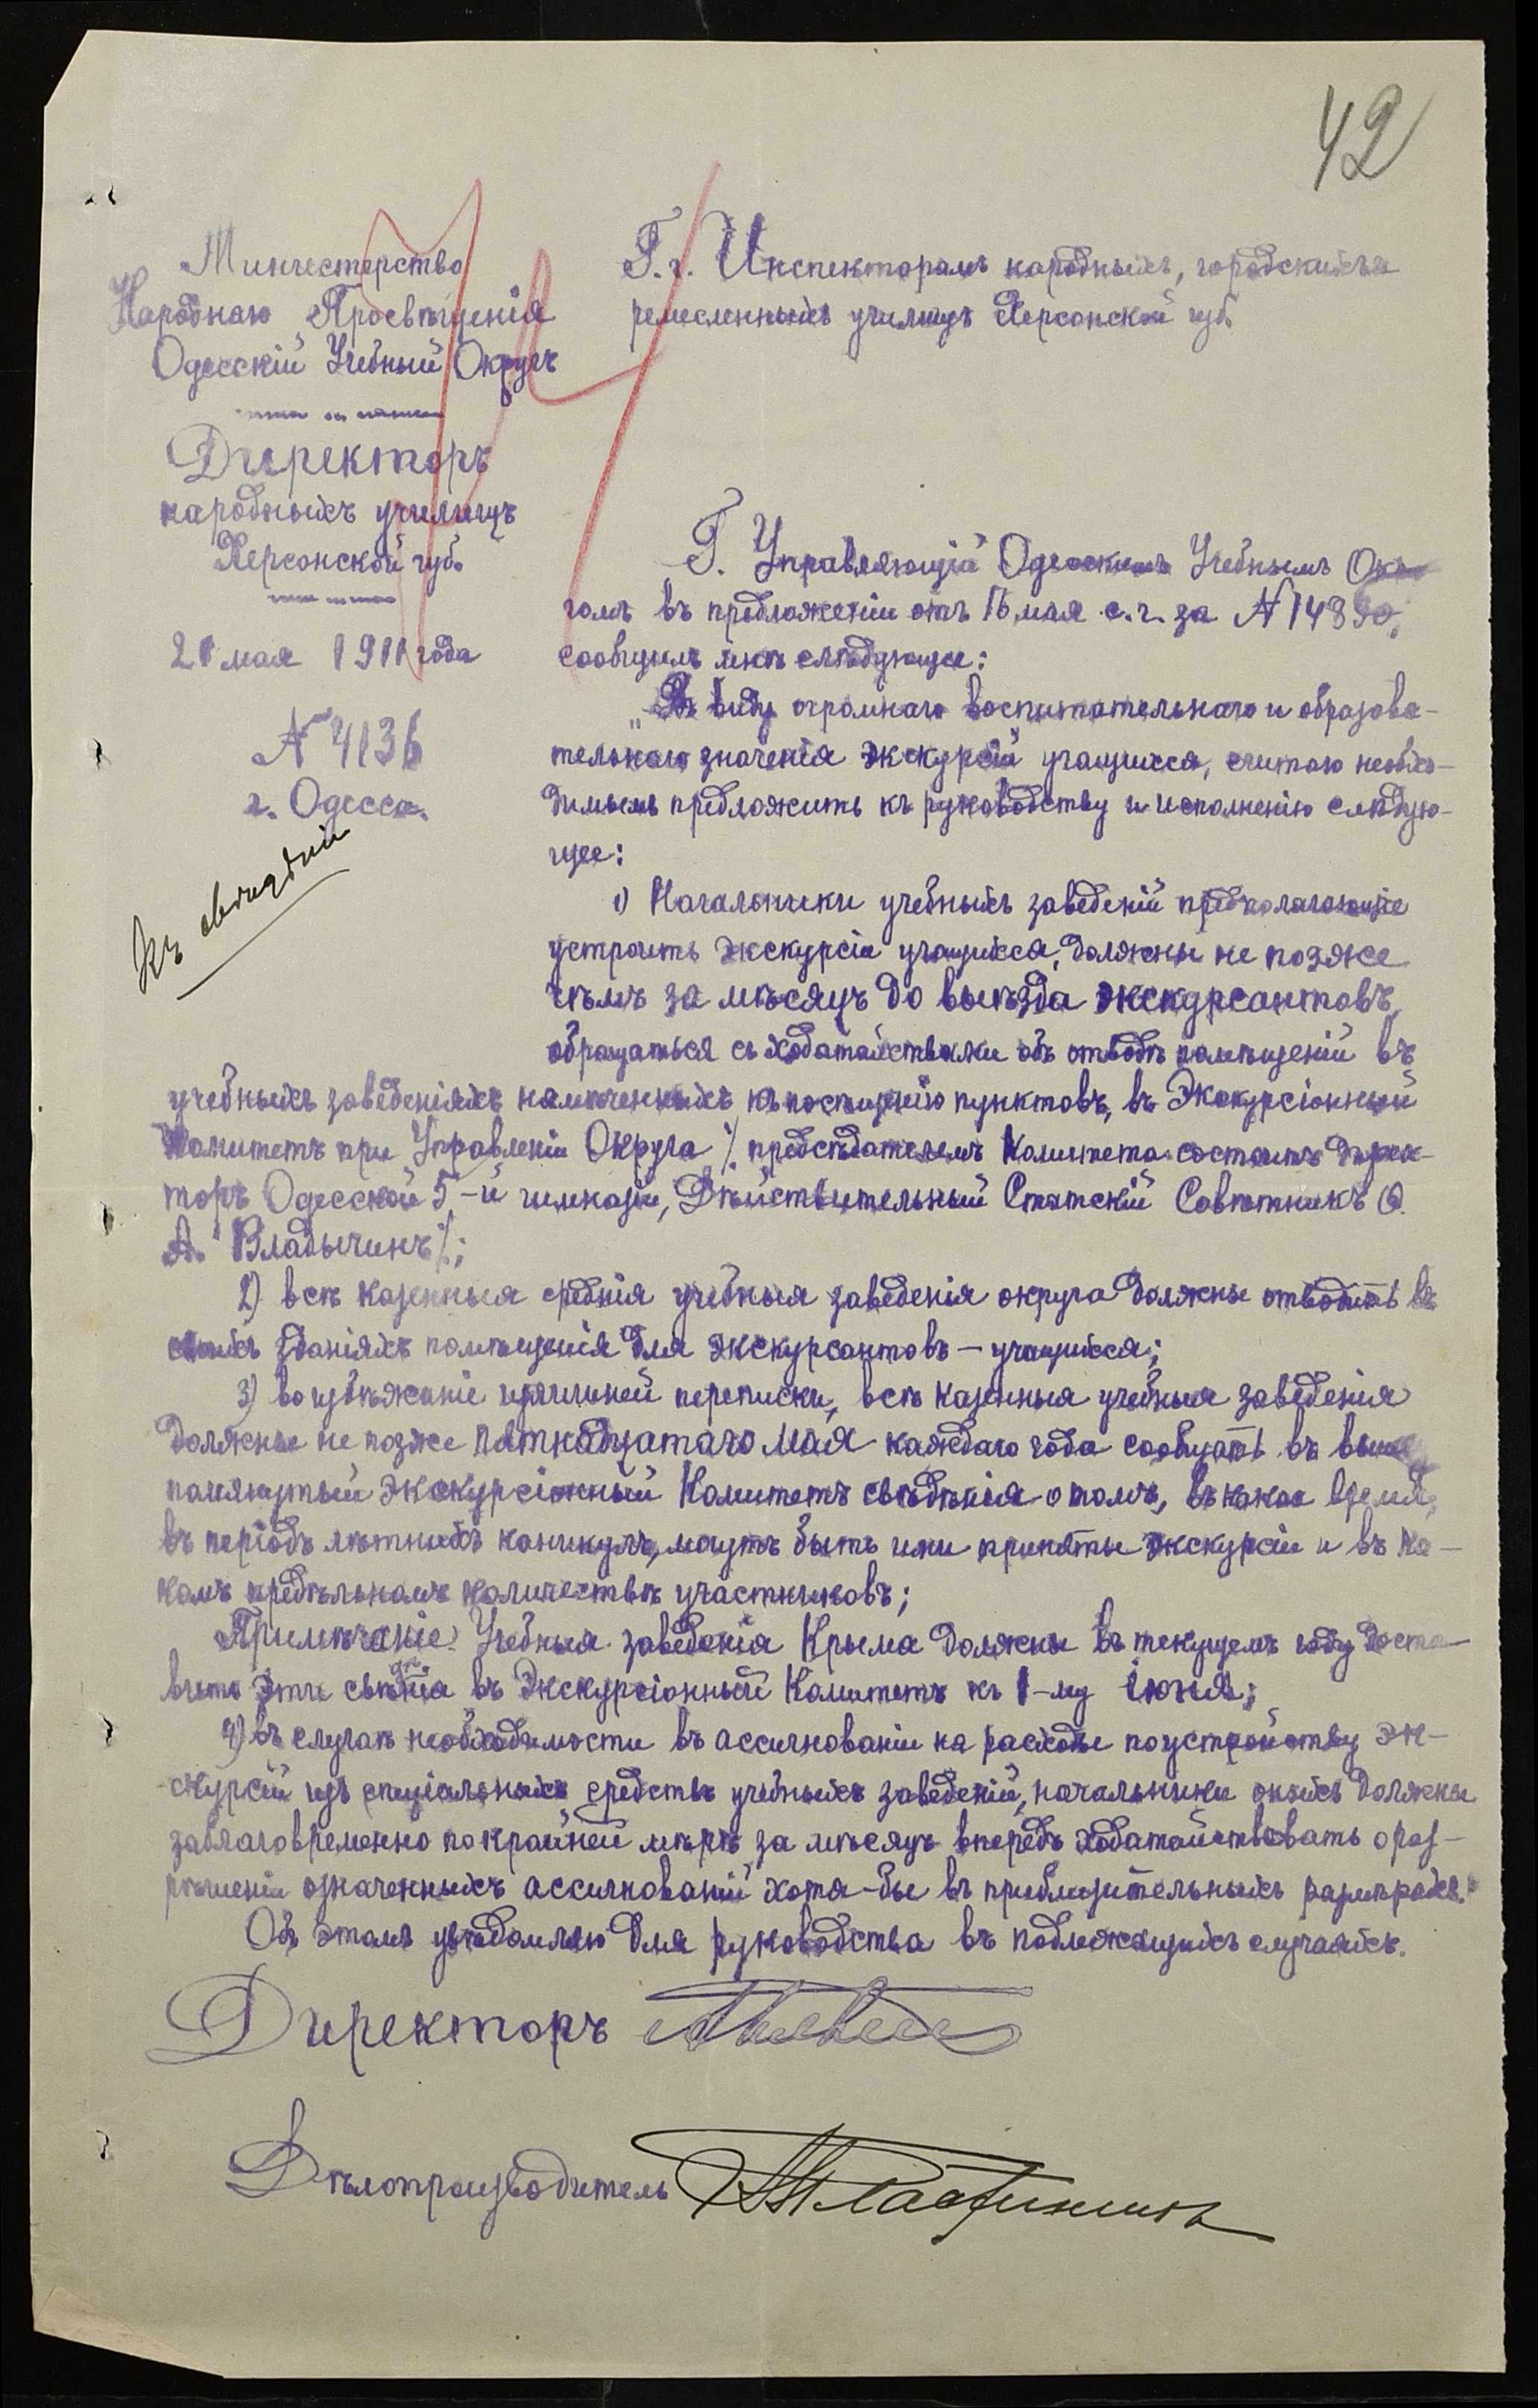 42
Министерство
Народнаго Просвѣщенія
Одесскій Учебный Округъ
Директоръ
народныхъ училищъ
Херсонской губ.
21 мая 1911 года
№ 4136
г. Одесса.
Г.г. Инспекторамъ народныхъ, городскихъ и
ремесленныхъ училищъ Херсонской губ.
Г. Управляющій Одесскимъ Учебнымъ Окру
гомъ въ предложеніи отъ 16 мая с.г. за № 14390,
сообщилъ мнѣ слѣдующее:
„Въ виду огромнаго воспитательнаго и образова-
тельнаго значенія экскурсій учащихся, считаю необхо-
димымъ предложить къ руководству и исполненію слѣдую-
щее:
1) Начальники учебныхъ заведеній предполагающіе
устроить экскурсіи учащихся, должны не позже
чѣмъ за мѣсяцъ до выѣзда экскурсантовъ,
обращаться съ ходатайствами объ отводѣ помѣщеній въ
учебныхъ заведеніяхъ намѣченныхъ къ посѣщенію пунктовъ, въ Экскурсіонный
Комитетъ при Управленіи Округа /. предсѣдателемъ Комитета состоитъ дирек-
торъ Одесской 5-й гимназіи, Дѣйствительный Статскій Совѣтникъ Ѳ.
А. Владычинъ /.;
2) всѣ казенныя среднія учебныя заведенія округа должны отводить въ
своихъ зданіяхъ помѣщенія для экскурсантовъ — учащихся;
3) во избѣжаніе излишней переписки, всѣ казенныя учебныя заведенія
должны не позже пятнадцатаго мая каждаго года сообщать въ выше
помянутый экскурсіонный Комитетъ свѣдѣнія о томъ, въ какое время,
въ періодъ лѣтнихъ каникулъ, могутъ быть ими приняты экскурсіи и въ ка-
комъ предѣльномъ количествѣ участниковъ;
Примѣчаніе. Учебныя заведенія Крыма должны въ текущемъ году доста-
вить эти свѣдѣнія въ Экскурсіонный Комитетъ къ 1-му іюня;
4) въ случаѣ необходимости въ ассигнованіи на расходы по устройству эк-
скурсій изъ спеціальныхъ средствъ учебныхъ заведеній, начальники оныхъ должны
заблаговременно по крайней мѣрѣ за мѣсяцъ впередъ ходатайствовать о раз-
рѣшеніи означенныхъ ассигнованій хотя-бы въ приблизительныхъ размѣрахъ."
Объ этомъ увѣдомляю для руководства въ подлежащихъ случаяхъ.
Директоръ
Дѣлопроизводитель